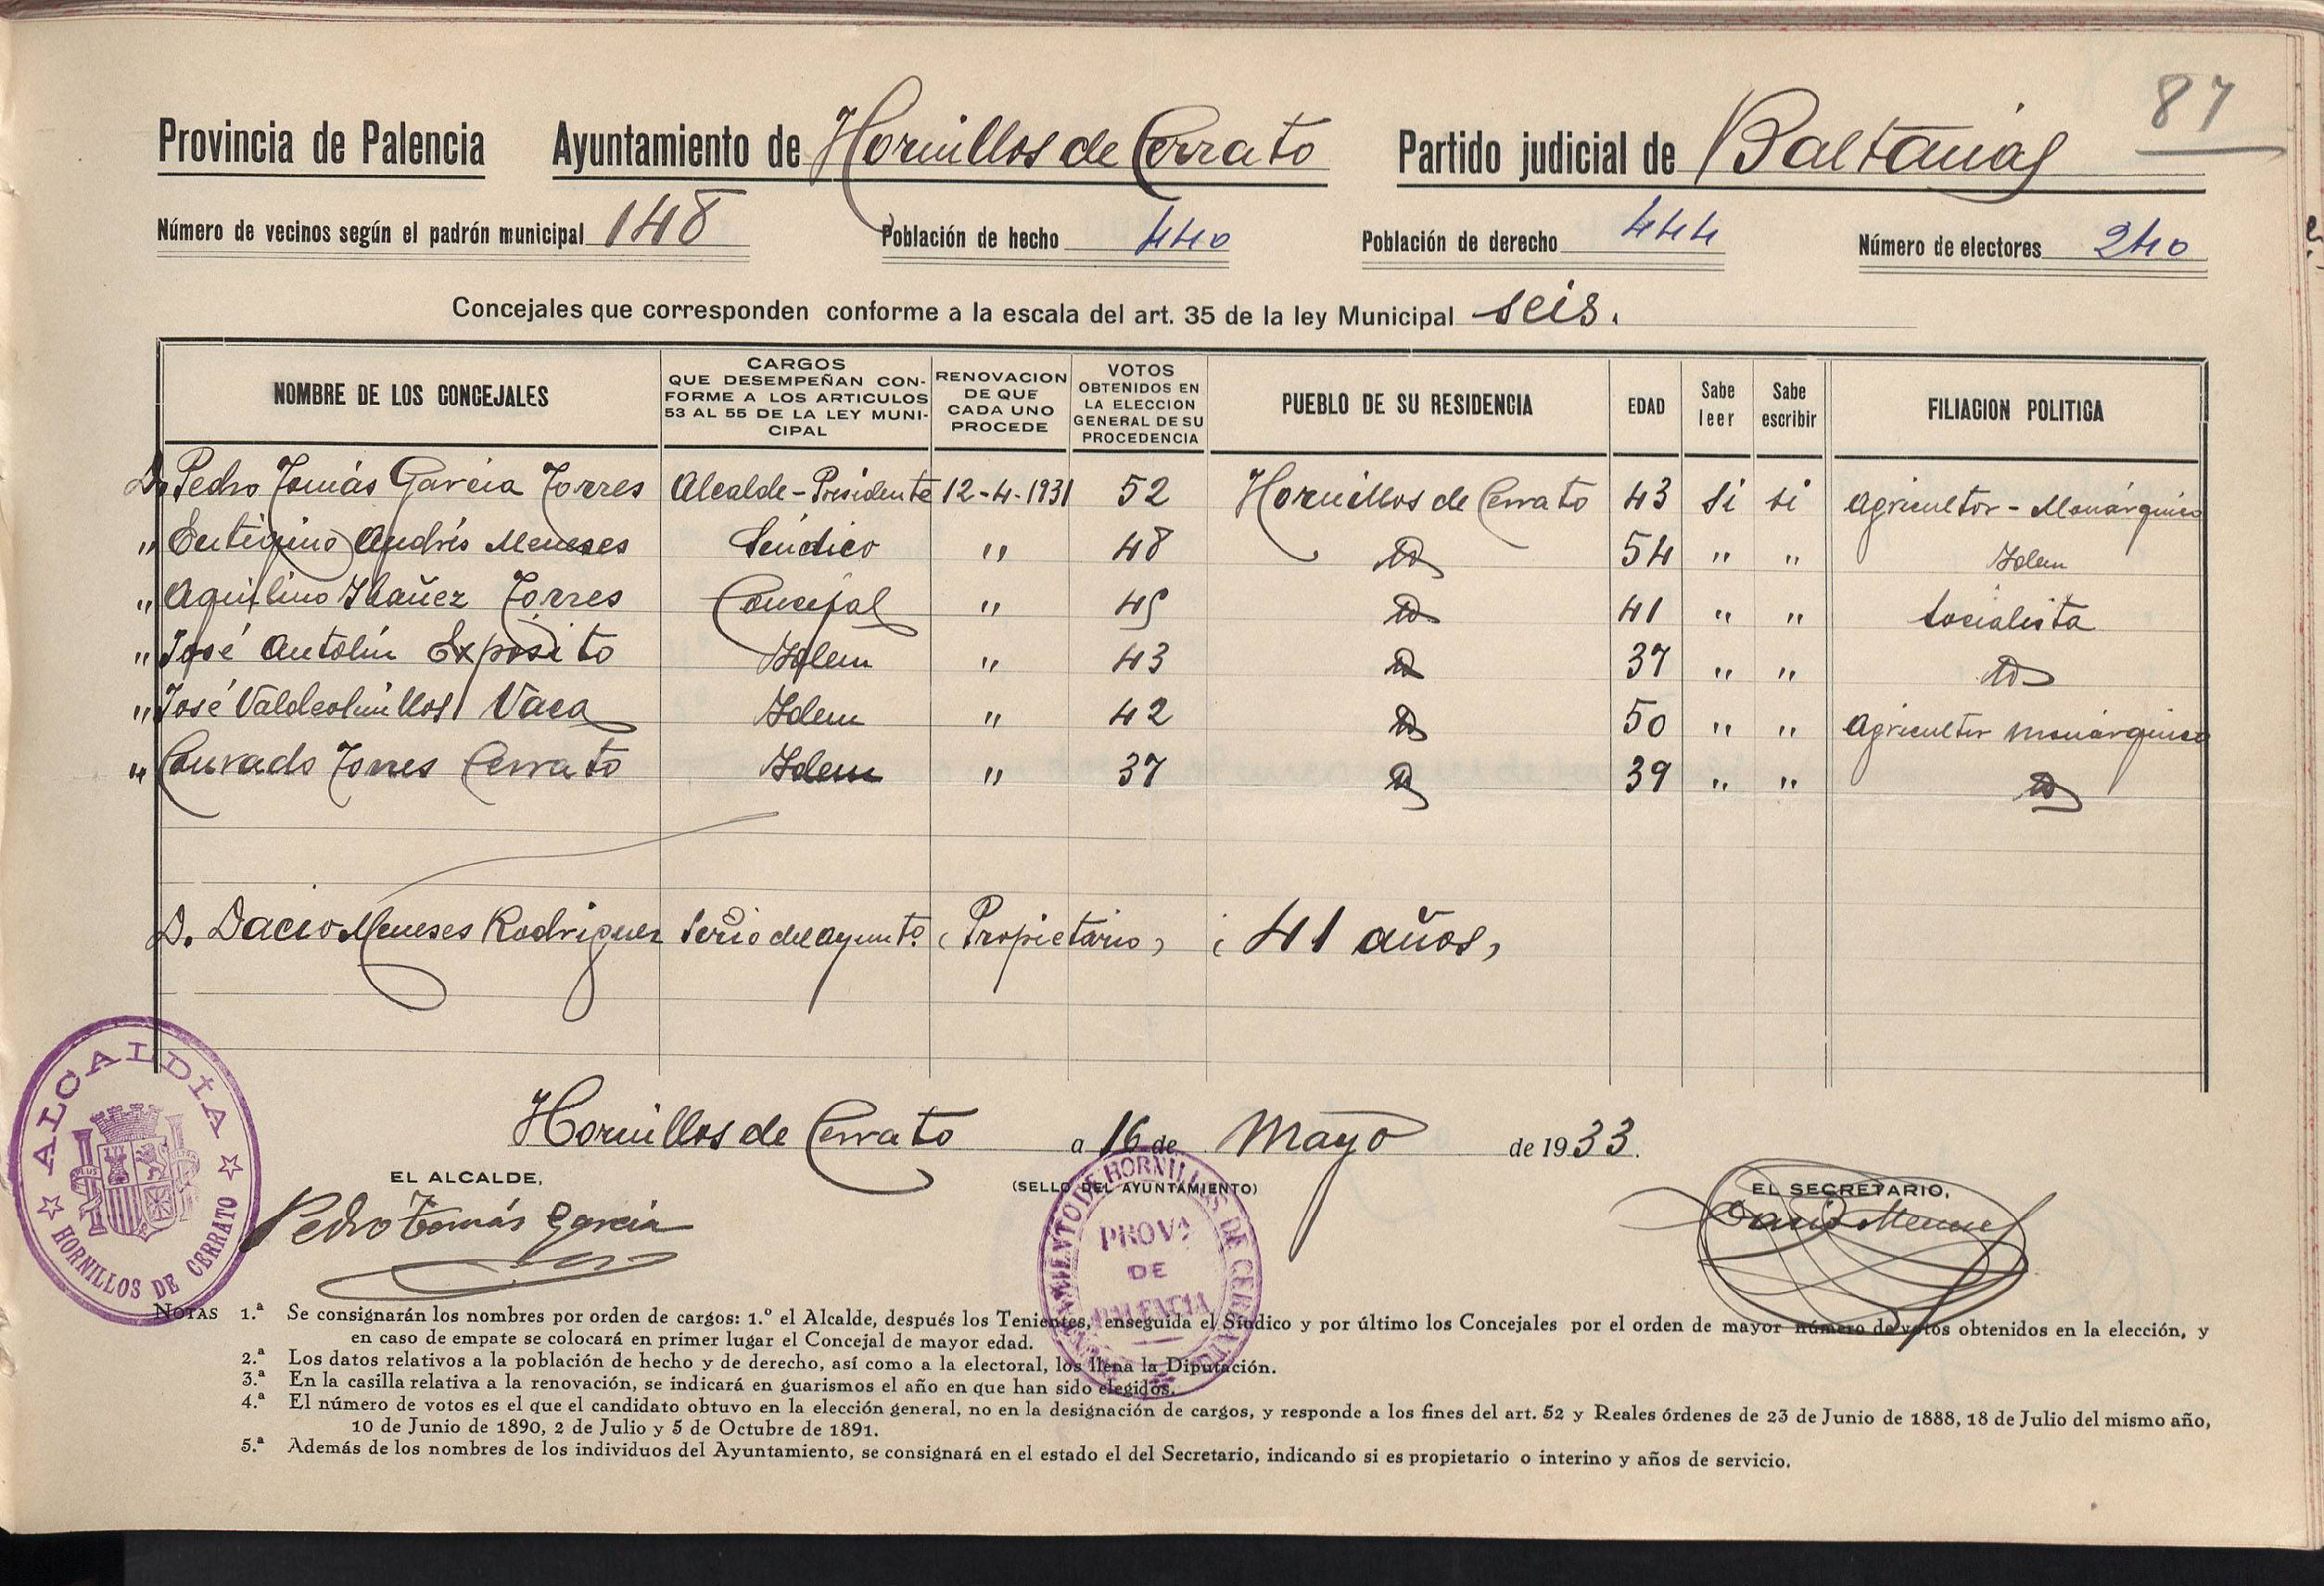 87
Provincia de Palencia Ayuntamiento de Hornillos de Cerrato Partido judicial de Baltanás
Número de vecinos según el padrón municipal 148 Población de hecho 440 Población de derecho 444 Número de electores 240
Concejales que corresponden conforme a la escala del art. 35 de la ley Municipal seis.
NOMBRE DE LOS CONCEJALES CARGOS QUE DESEMPEÑAN CON- FORME A LOS ARTICULOS 53 AL 55 DE LA LEY MUNI- CIPAL RENOVACION DE QUE CADA UNO PROCEDE VOTOS OBTENIDOS EN LA ELECCION GENERAL DE SU PROCEDENCIA PUEBLO DE SU RESIDENCIA EDAD Sabe leer Sabe escribir FILIACION POLITICA
D. Pedro Tomás García Torres Alcalde-Presidente 12-4-1931 52 Hornillos de Cerrato 43 si si Agricultor - Monárquico
" Eutiquino Andrés Meneses Síndico " 48 ID 54 " " Idem
" Aquilino Ibañez Torres Concejal " 45 ID 41 " " Socialista
" José Antolín Expósito Idem " 43 ID 37 " " ID
" José Valdeolmillos Vaca Idem " 42 ID 50 " " Agricultor Monárquico
" Conrado Torres Cerrato Idem " 37 ID 39 " " ID
D. Dacio Meneses Rodriguez Serio del ayunto. (Propietario) (41 años)
Hornillos de Cerrato a 16 de Mayo de 1933.
EL ALCALDE, (SELLO DEL AYUNTAMIENTO) EL SECRETARIO,
Pedro Tomás García Dacio Meneses
ALCALDIA
HORNILLOS DE CERRATO
AYUNTAMIENTO DE HORNILLOS DE CERRATO
PROVA
DE
PALENCIA
NOTAS 1.ª Se consignarán los nombres por orden de cargos: 1.º el Alcalde, después los Tenientes, enseguida el Síndico y por último los Concejales por el orden de mayor número de votos obtenidos en la elección, y
en caso de empate se colocará en primer lugar el Concejal de mayor edad.
2.ª Los datos relativos a la población de hecho y de derecho, así como a la electoral, los llena la Diputación.
3.ª En la casilla relativa a la renovación, se indicará en guarismos el año en que han sido elegidos.
4.ª El número de votos es el que el candidato obtuvo en la elección general, no en la designación de cargos, y responde a los fines del art. 52 y Reales órdenes de 23 de Junio de 1888, 18 de Julio del mismo año,
10 de Junio de 1890, 2 de Julio y 5 de Octubre de 1891.
5.ª Además de los nombres de los individuos del Ayuntamiento, se consignará en el estado el del Secretario, indicando si es propietario o interino y años de servicio.